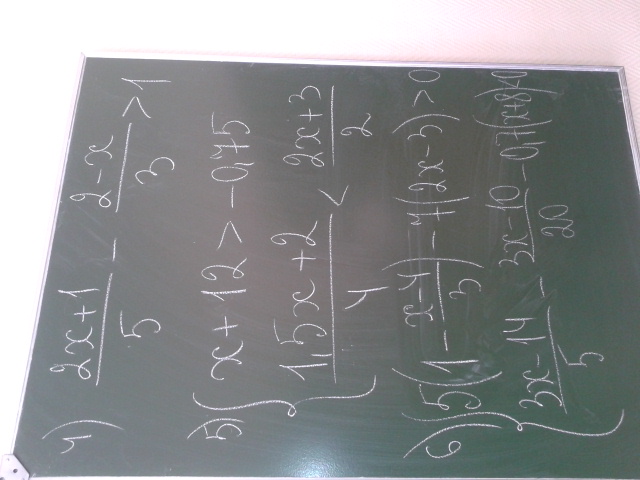 4) (2x+1)/5 - (2-x)/3 > 1
5) { x+12 > -0,75
(1,5x+2)/4 < (2x+3)/2
6) { 5(1 - (x-4)/3) - 7(2x-3) > 0
(3x-14)/5 - (3x-10)/20 - 0,7(x+8) < 0